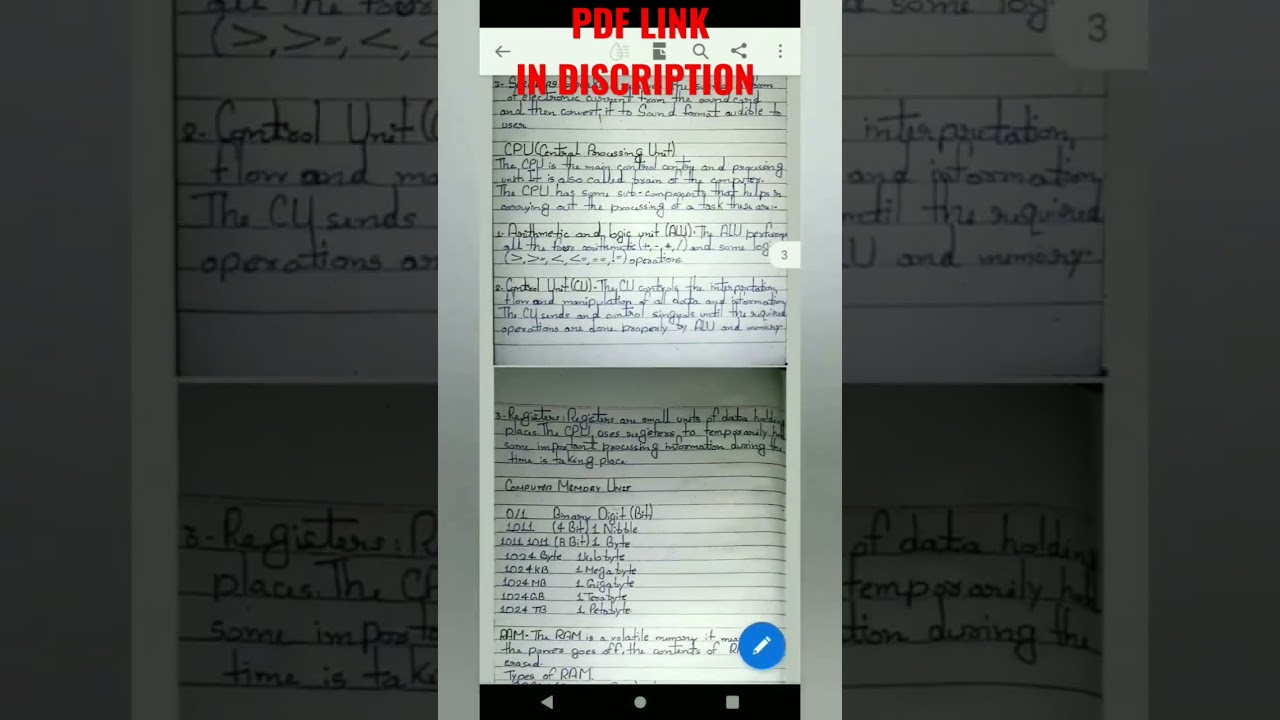 PDF LINK
IN DISCRIPTION
of electronic current from the sound card
and then convert it to Sound format audible to
user
CPU(Central Processing Unit)
The CPU is the main control centre and processing
unit. It is also called brain of the computer.
The CPU has some sub-components that helps in
carrying out the processing of a task these are:-
1. Arithmetic and logic unit (ALU)-The ALU perform
all the four arithmetic (+,-,*,/) and some log
(>,>=,<,<=,==,!=) operations
3
2-Control Unit (CU)-The CU controls the interpretation,
flow and manipulation of all data and information
The CU sends and control singyals until the required
operations are done properly by ALU and memory.
3-Registers: Registers are small units of data holding
places. The CPU uses registers to temporarily hol
some important processing information during the
time is taking place
COMPUTER MEMORY UNIT
0/1 Binary Digit (Bit)
1011 (4 Bit) 1 Nibble
1011 1011 (8 Bit) 1 Byte
1024 Byte 1 kilobyte
1024 KB 1 Megabyte
1024 MB 1 Gigabyte
1024 GB 1 Terabyte
1024 TB 1 Petabyte
RAM-The RAM is a volatile memory it
the power goes off, the contents of
erased.
Types of RAM.